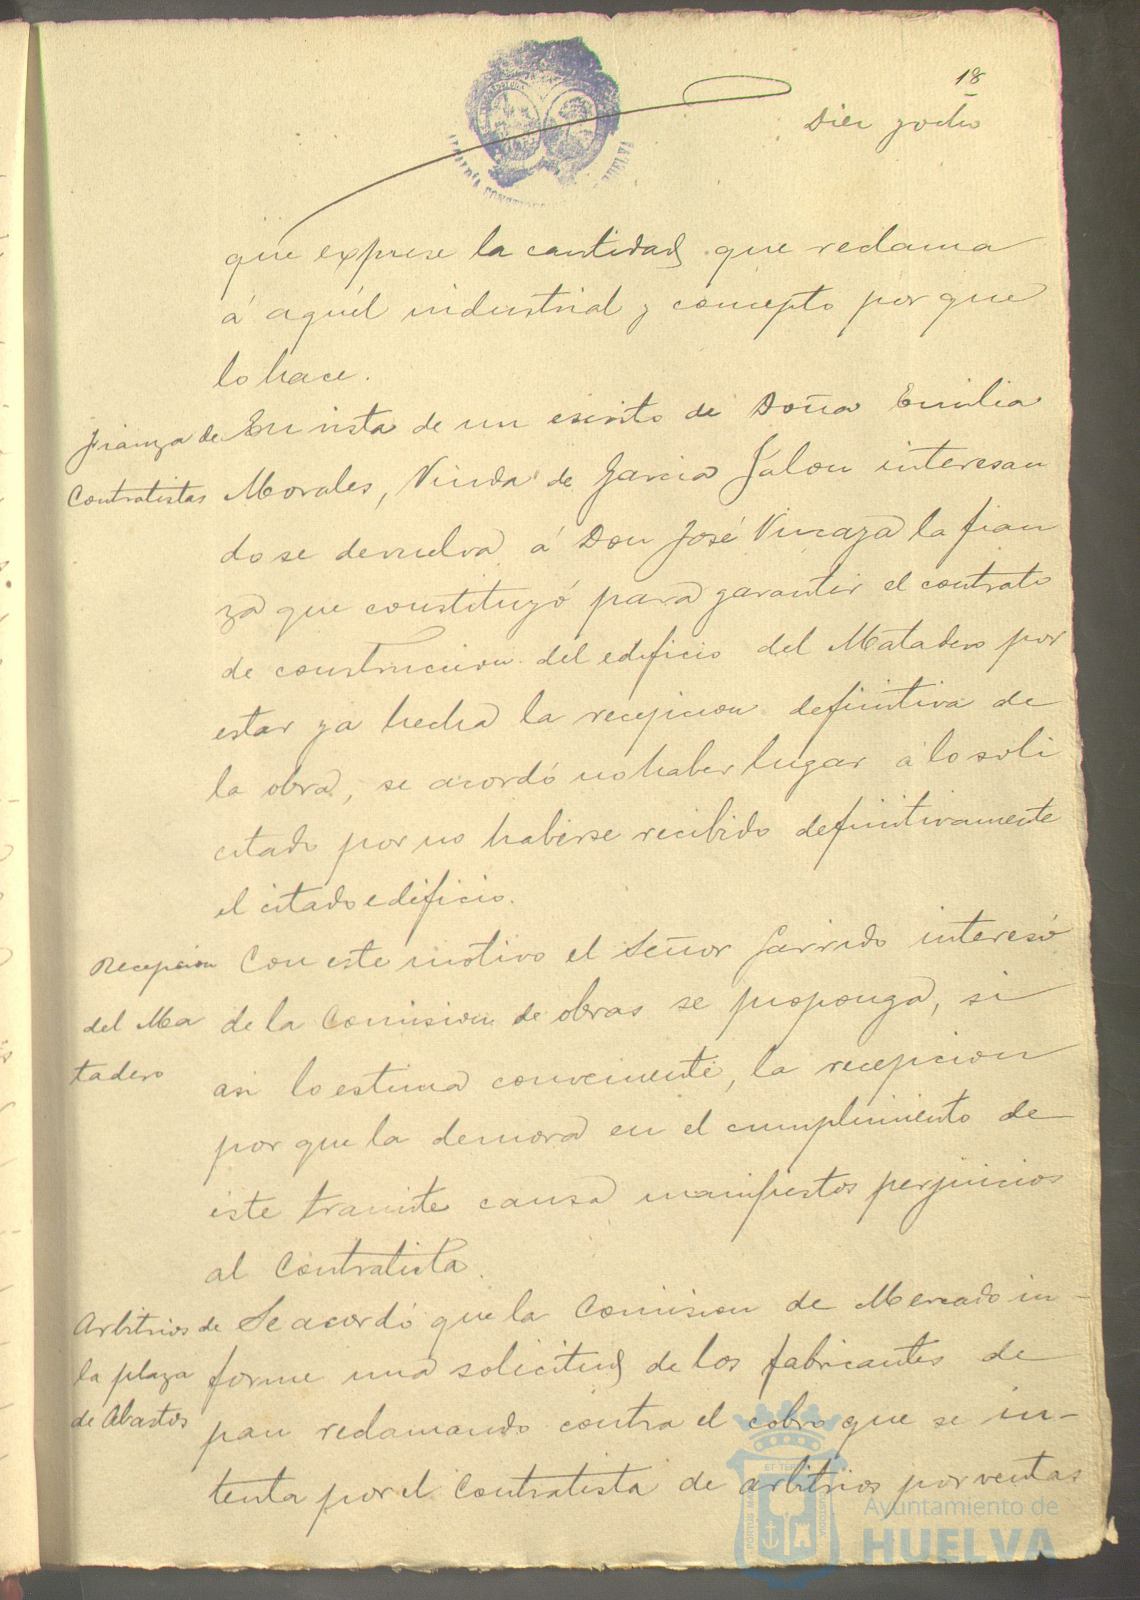 18
Diez y ocho
que exprese la cantidad que reclama
á aquél industrial y concepto por que
lo hace.
Fianza de
Contratistas
En vista de un escrito de Doña Emilia
Morales, Viuda de Garcia Jalon interesan
do se devuelva á Don José Vizcaya la fian
za que constituyó para garantir el contrato
de construccion del edificio del Matadero por
estar ya hecha la recepcion definitiva de
la obra, se acordó no haber lugar á lo soli
citado por no haberse recibido definitivamente
el citado edificio.
Recepción
del Ma
tadero
Con este motivo el Señor Garrido interesó
de la Comision de obras se proponga, si
asi lo estima conveniente, la recepcion
por que la demora en el cumplimiento de
este tramite causa manifiestos perjuicios
al Contratista.
Arbitrios de
la plaza
de Abastos
Se acordó que la Comision de Mercado in-
forme una solicitud de los fabricantes de
pan reclamando contra el cobro que se in-
tenta por el Contratista de arbitrios por ventas
Ayuntamiento de
HUELVA